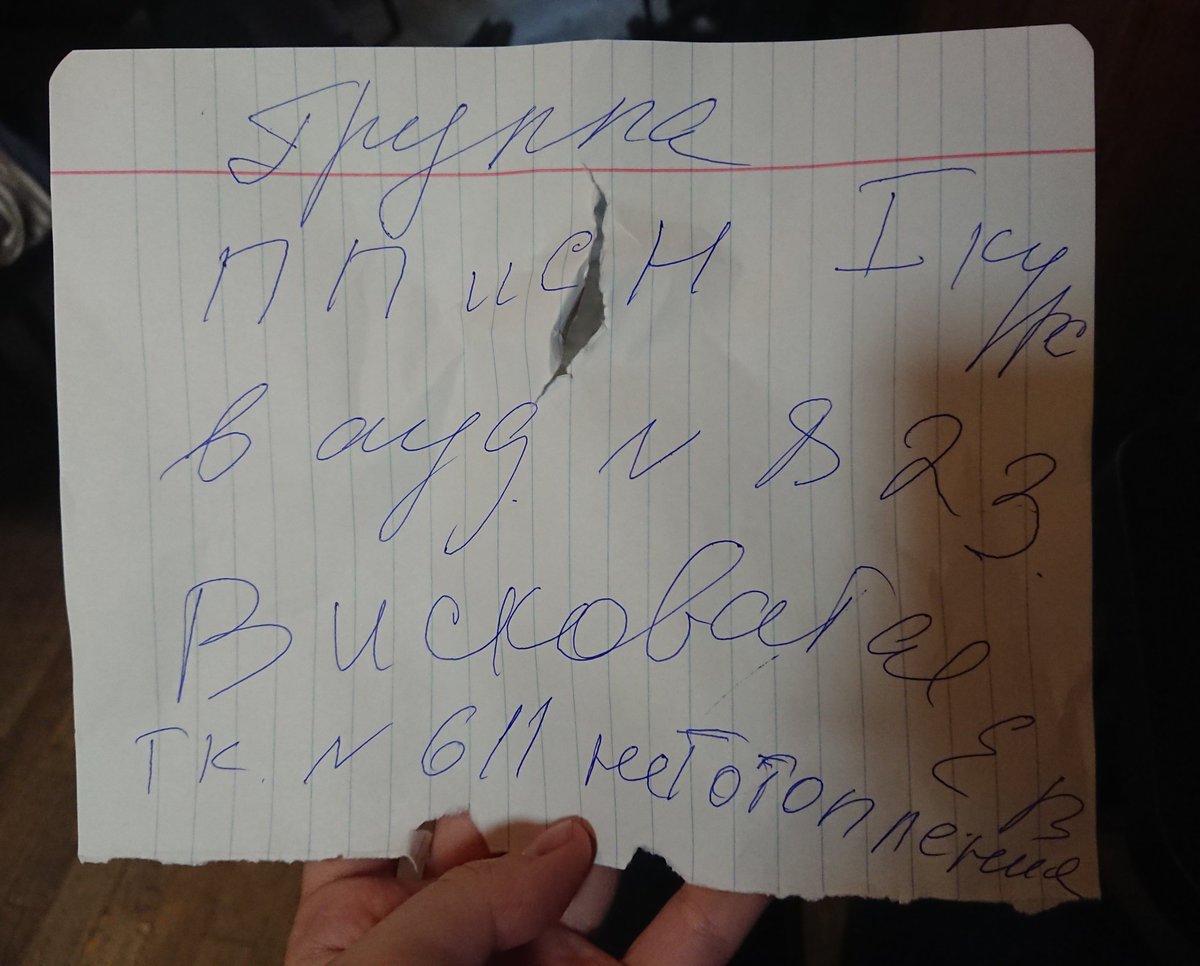 Группа
ППиСН I курс
в ауд. N 823.
Висковатая Е В
т.к. N 611 нет отопления